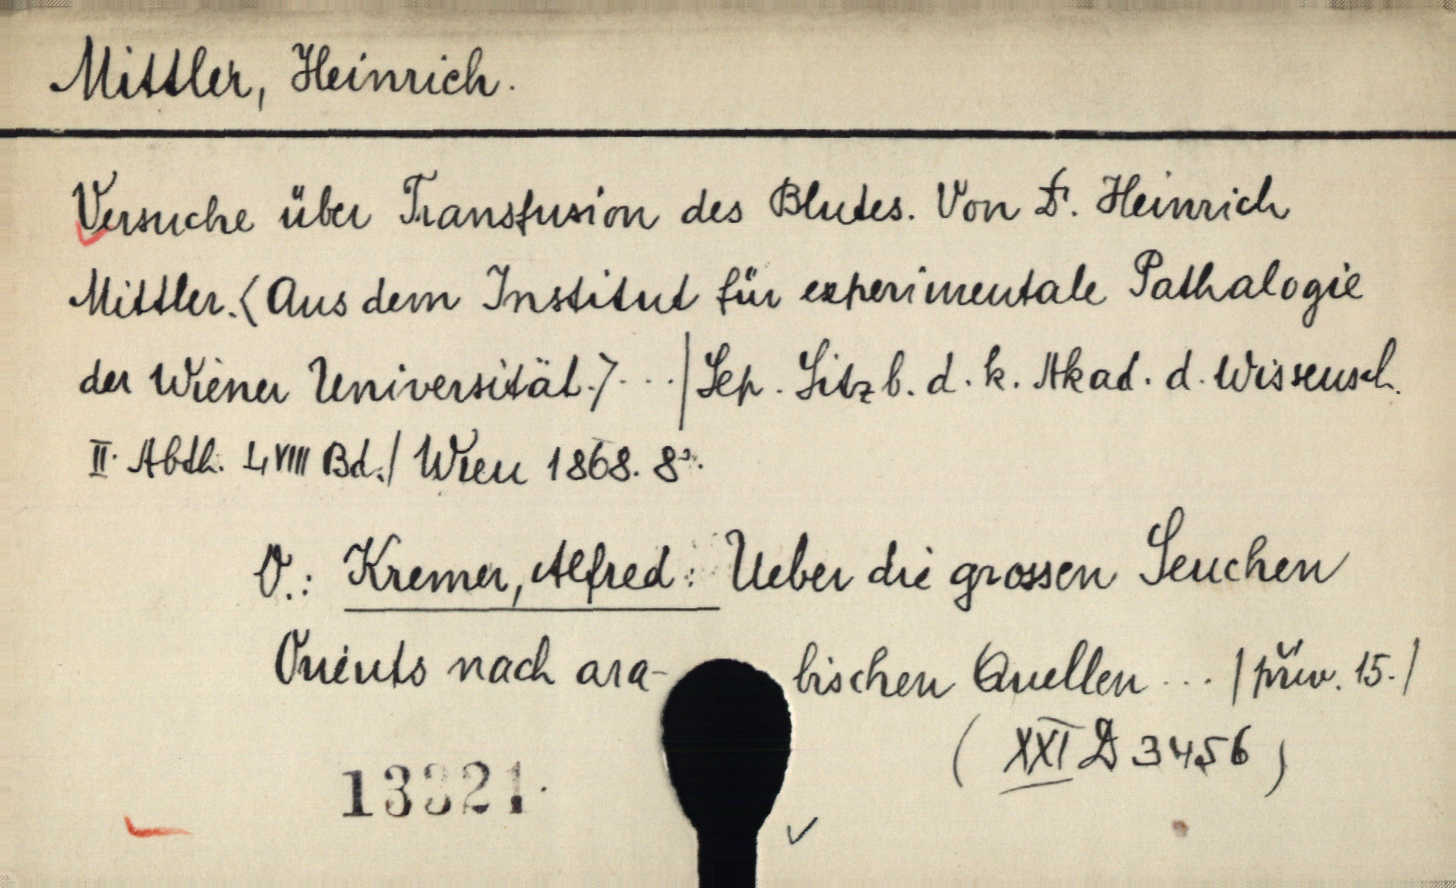 Mittler, Heinrich.
Versuche über Transfusion des Blutes. Von Dr. Heinrich
Mittler. (Aus dem Institut für experimentale Pathalogie
der Wiener Universität.) ... / Sep. Sitzb. d. k. Akad. d. Wissensch.
II. Abth. LVIII Bd./ Wien 1868. 8°.
V.: Kremer, Alfred: Ueber die grossen Seuchen
Orients nach ara- bischen Quellen ... /přív. 15./
(XXI D 3456)
13321.